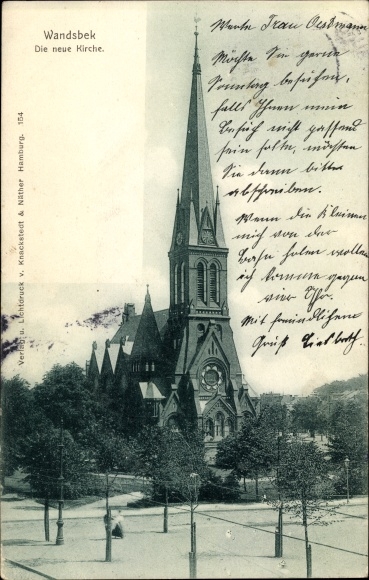 Wandsbek
Die neue Kirche.
Verlag u. Lichtdruck v. Knackstedt & Näther Hamburg. 154
Werte Frau Oestmann
Möchte Sie gerne
Sonntag besuchen,
falls Ihnen mein
Besuch nicht passend
sein sollte, möchten
Sie dann bitte
abschreiben.
Wenn die Kleinen
mich von der
Bahn holen wollen
ich komme gegen
vier Uhr.
Mit freundlichem
Gruß